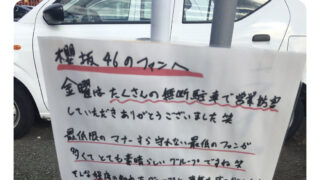 櫻坂46のファンへ
金曜はたくさんの無断駐車で営業妨害
していただきありがとうございました笑
最低限のマナーすら守れない最低のファンが
多くてとても素晴らしいグループですね笑